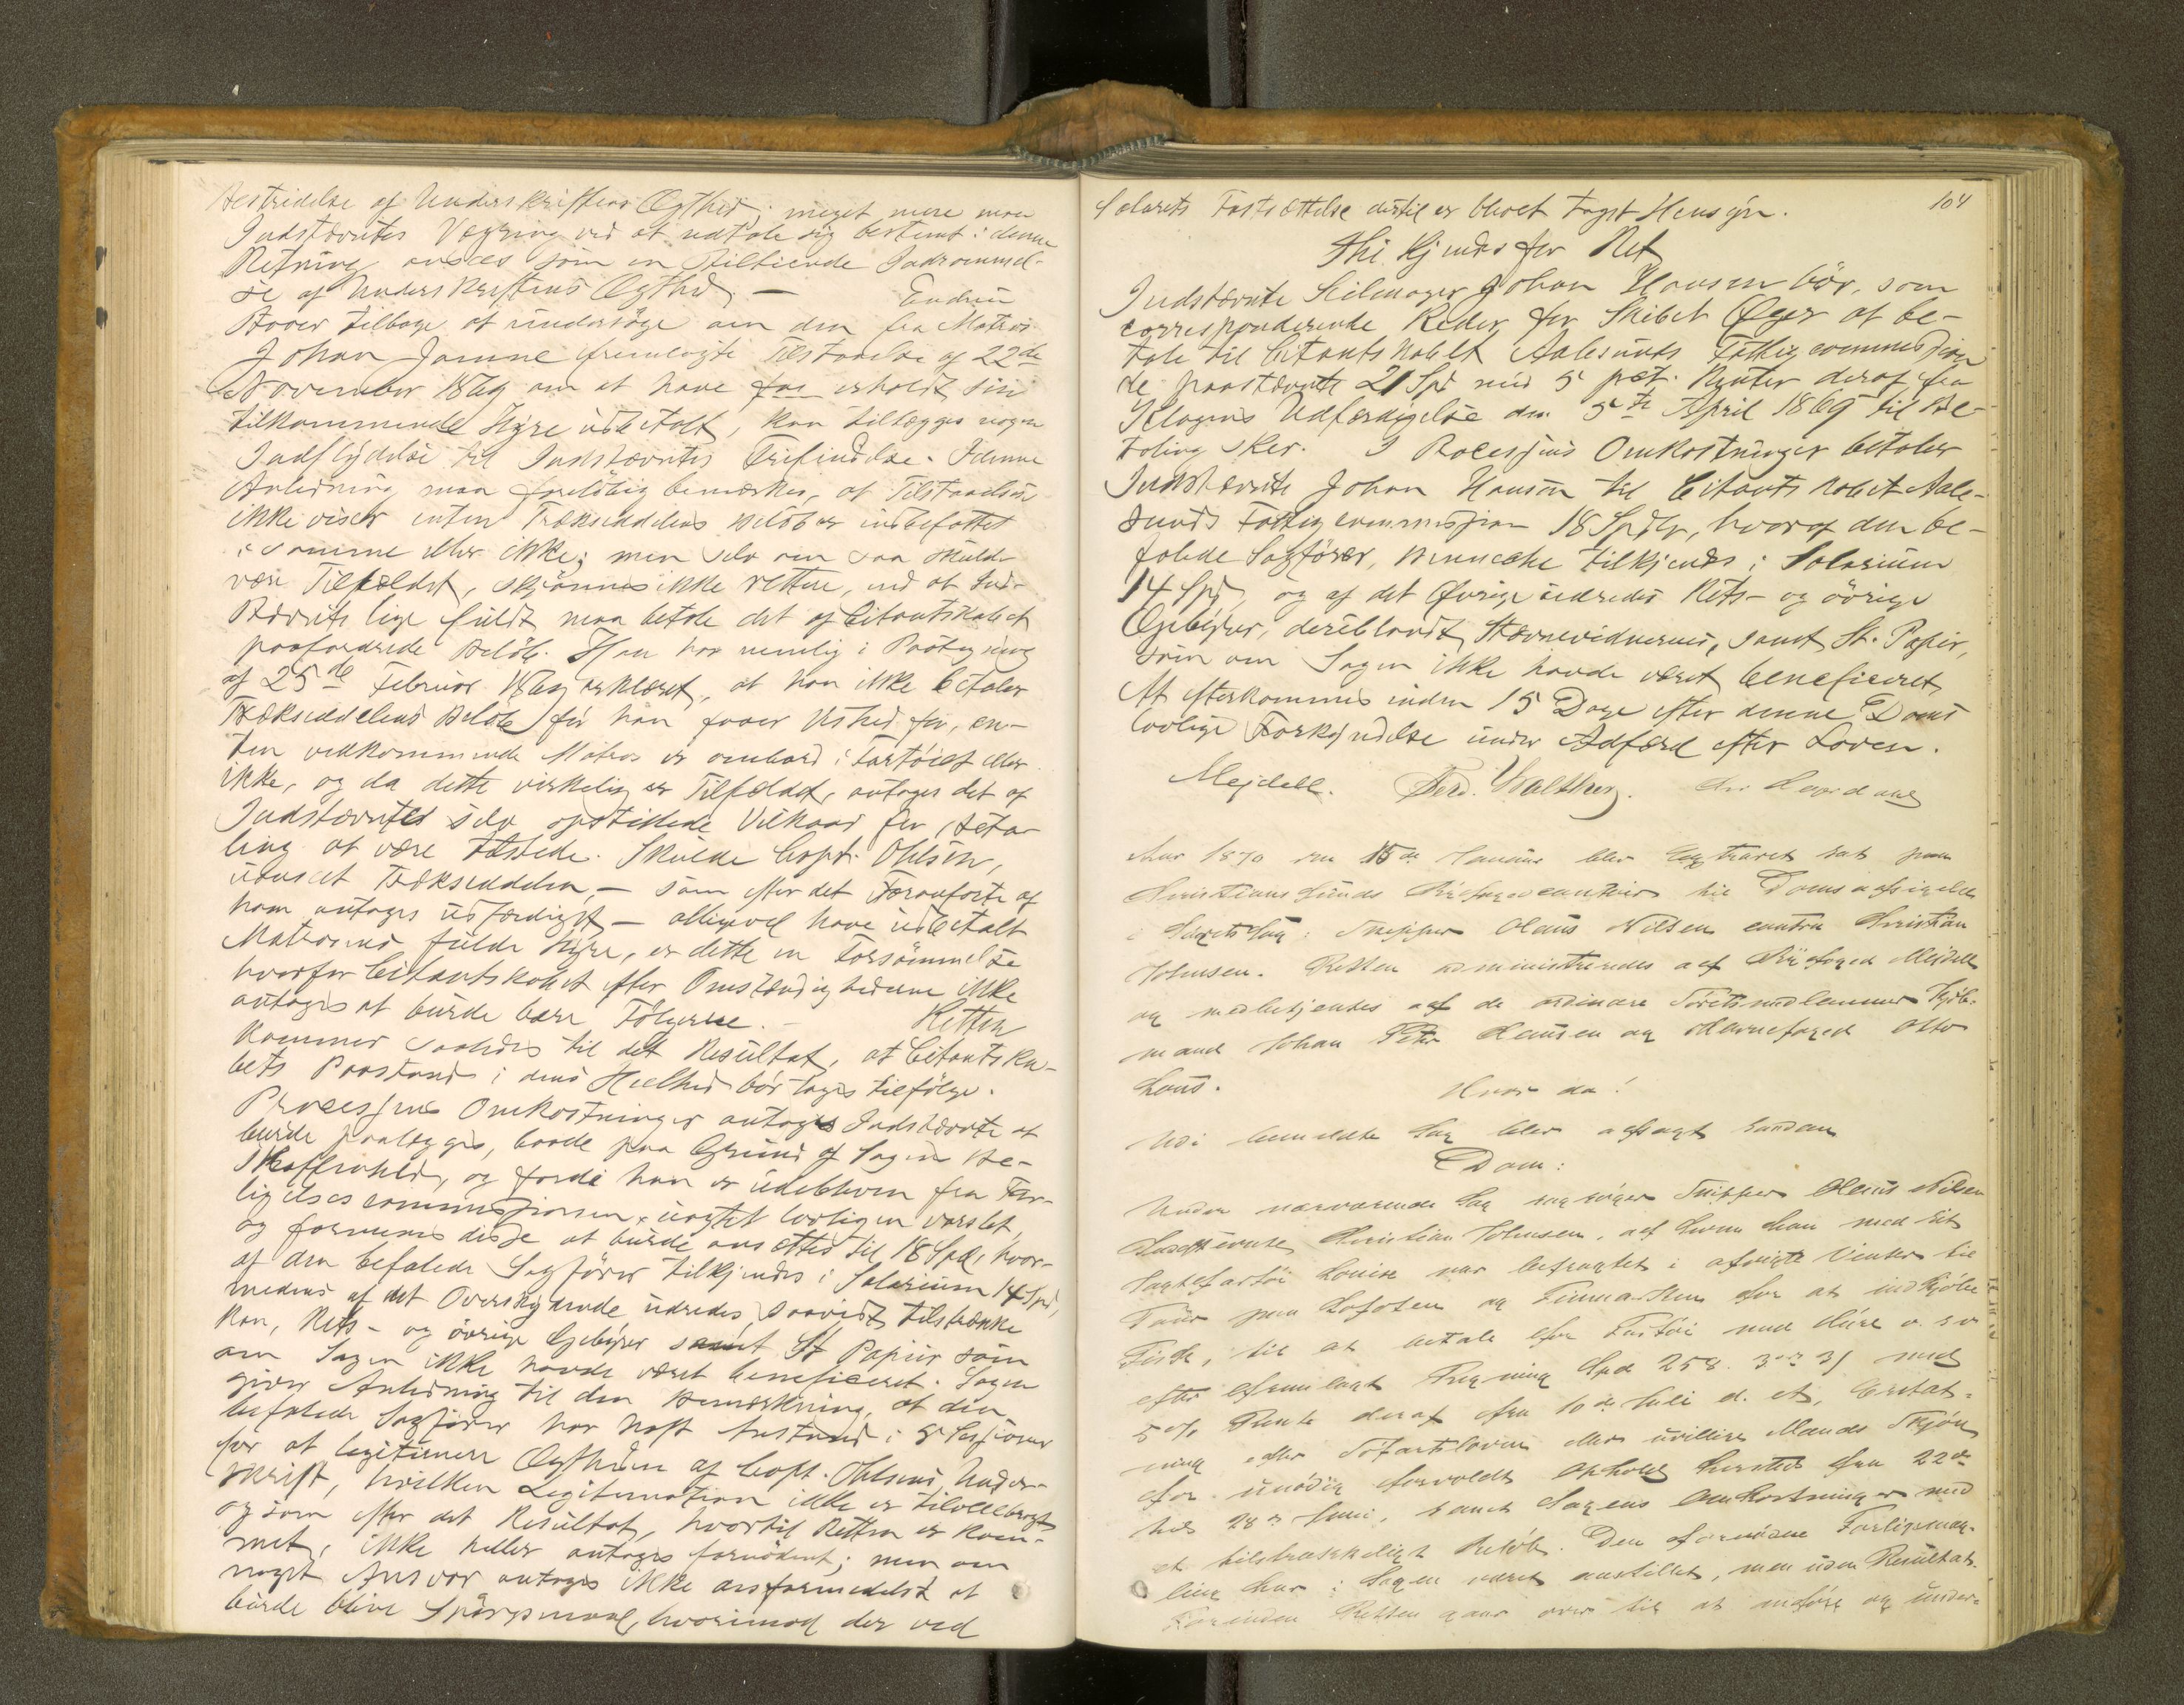 Bestridelse af Underskriftens Ægthed; meget mere maa
Indstævntes Vægring ved at udtale sig bestemt i denne
Retning ansees som en stiltiende Indrømmel-
se af Underskriftens Ægthed. — Endnu
staaer tilbage at undersøge om den fra Matros
Johan Janne fremlagte Tilstaaelse af 22de
November 1869 om at have faa erholdt sin
tilkommende Hyre udbetalt, kan tillægges nogen
Indflydelse til Indstævntes Frifindelse. I denne
Anledning maa foreløbig bemærkes, at Tilstaaelsen
ikke viser enten Trækseddelens Beløb er indbefattet
i samme eller ikke; men selv om saa skulde
være Tilfældet, skjønnes ikke rettere, end at Ind-
stævnte lige fuldt maa betale det af Citantskabet
paafordrede Beløb. Han har nemlig i Paategning
af 25de Februar 1869 erklæret, at han ikke betaler
Trækseddelens Beløb før han faaer Vished for, en-
ten vedkommende Matros er ombord i Fartøiet eller
ikke, og da dette virkelig er Tilfældet, antages det af
Indstævntes selv opstillede Vilkaar for Beta-
ling at være tilstede. Skulde Capt. Ohlsen,
uanseet Trækseddelen, — som efter det Foranførte af
ham antages udfærdiget — alligevel have udbetalt
Matrosens fulde Hyre, er dette en Forsømmelse
hvorfor Citantskabet efter Omstændighederne ikke
antages at burde bære Følgerne. — Retten
kommer saaledes til det Resultat, at Citantska-
bets Paastand i dens Heelhed bør tages tilfølge.
Processens Omkostninger antages Indstævnte at
burde paalægges, baade paa Grund af Sagens Be-
skaffenhed, og fordi han er udebleven fra For-
ligelsescommissionen, uagtet lovligen varslet,
og formenes disse at burde ansættes til 18 Spd, hvor-
af den befalede Sagfører tilkjendes i Salarium 14 Spd,
medens af det Overskydende udredes, saavidt tilstrække
kan, Rets- og øvrige Gebyrer samt St. Papiir som
om Sagen ikke havde været beneficeret. Sagen
giver Anledning til den Bemærkning, at den
befalede Sagfører har havt Anstand i 5 Sessioner
for at legitimere Ægtheden af Capt. Ohlsens Under-
skrift, hvilken Legitimation ikke er tilveiebragt,
og som efter det Resultat, hvortil Retten er kom-
met, ikke heller antages fornødent; men om
noget Ansvar antages ikke desformedelst at
burde blive Spørgsmaal, hvorimod der ved
104
Salarets Fastsættelse dertil er blevet taget Hensyn.
Thi kjendes for Ret
Indstævnte Seilmager Johan Hansen bør, som
correspoonderende Reder for Skibet Æger at be-
tale til Citantskabet Aalesunds Fattigcommission
de paastævnte 21 Spd med 5 pct. Renter deraf fra
Klagens Udfærdigelse den 5te April 1869 til Be-
taling skeer. I Processens Omkostninger betaler
Indstævnte Johan Hansen til Citantskabet Aale-
sunds Fattigcommission 18 Spdlr, hvoraf den be-
falede Sagfører, tilkjendes i Salarium
14 Spd, og af det Øvrige udredes Rets- og øvrige
Gebyrer, deriblandt Stævnevidnernes, samt St. Papir,
som om Sagen ikke havde været beneficeret.
At efterkommes inden 15 Dage efter denne Doms
lovlige Forkyndelse under Adfærd efter Loven.
Mejdell. Ferd. Walther.
Aar 1870 den 15de Januar blev Extraret sat paa
Christianssunds Byfogedcontoir til Doms afsigelse
i Søretssag: Skipper Olaus Nilsen contra Christian
Johnsen. Retten administreredes af Byfoged Mejdell
og medbetjentes af de ordinære Søretsmedlemmer Kjøb-
mand Johan Peter Hansen og Havnefoged Otto
Lous.
Hvor da!
Udi bemeldte Sag blev afsagt saadan
Dom:
Under nærværende Sag sagsøger Skipper Olaus Nilsen
Indstævnte Christian Johnsen, af hvem han med sit
Jagtefartøi Louise var befragtet i afvigte Vinter til
Tour paa Lofoten og Finmarken for at indkjøbe
Fisk, til at betale for Fartøi med Hyre o. s. v.
efter fremlagt Regning Spd 258. 3 31 med
5% Rente deraf fra 10de Juli d. A., Erstat-
ning efter Søfartsloven eller uvillige Mænds Skjøn
for unødig forvoldt Ophold hersteds fra 22de
til 28de Juni, samt Sagens Omkostninger med
et tilstrækkeligt Beløb. Den fornødne Forligsmæg-
ling har i Sagen været anstillet, men uden Resultat.
Forinden Retten gaar over til at anføre og under-